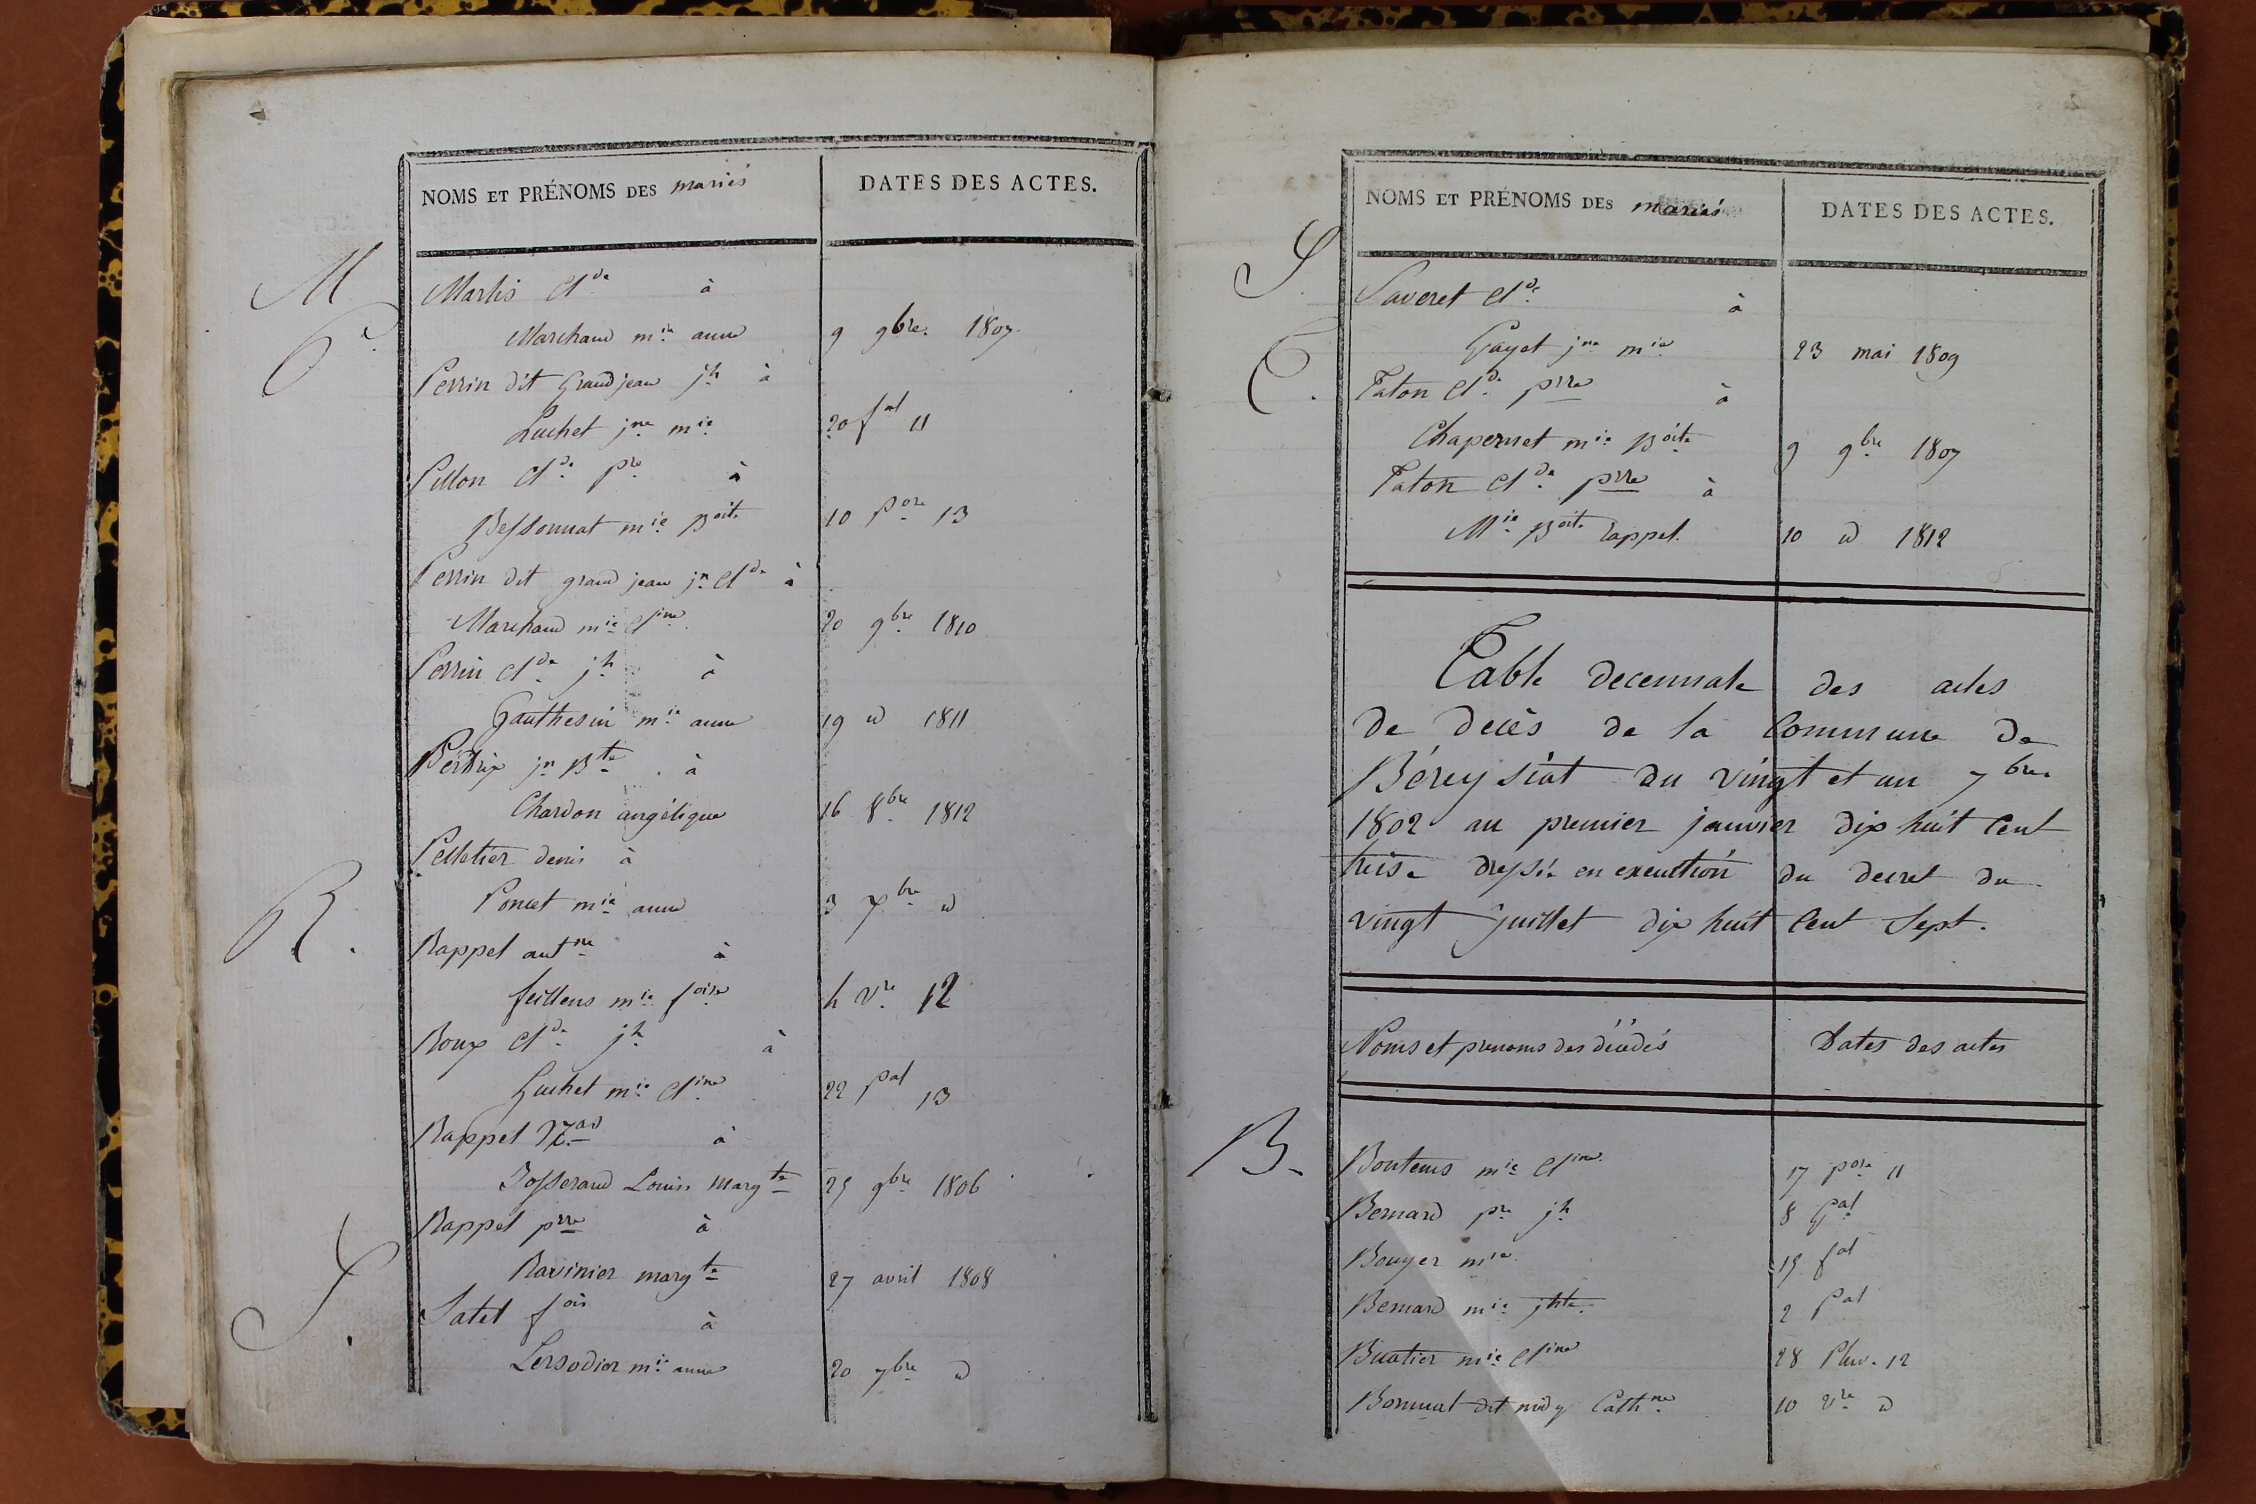 NOMS ET PRÉNOMS DES mariés
DATES DES ACTES.
M
Cl.de à
Marchand m.ie anne 9 9bre. 1807.
P.
Perrin dit Grandjean j.h à
Luchet j.ne m.ie 20 f.al 11
Pillon Cl.de p.re à
Bessonnat m.ie B.oite 10 13
Perrin dit grand jean j.n Cl.de à
Marchand m.ie Cl.ine 20 9.bre 1810
Perrin Cl.de j.h à
m.ie anne 19 d 1811
Perdrix j.n B.te à
Chardon angélique 16 8.bre 1812
Pelletier denis à
Poncet m.ie anne 3 d
R.
Rappel ant.ne à
feillens m.ie f.oise 4 V.re 12
Roux Cl.de j.h à
Guchet m.ie Cl.ine 22 13
Rappel à
Josserand Louise marg.te 25 9.bre 1806
Rappel p.rre à
Ravinier marg.te 27 avril 1808
S.
Satel f.ois à
m.ie anne 20 7.bre d
NOMS ET PRÉNOMS DES mariés
DATES DES ACTES.
S.
Saveret Cl.de à
Gayet j.ne m.ie 23 mai 1809
T.
Taton Cl.de p.rre à
Chapernet m.ie B.oite 9 9.bre 1807
Taton Cl.de p.rre à
M.ie B.oite Rappel. 10 d 1812
Table decennale des actes
de decès de la Commune de
Béreysiat du vingt et un 7.bre
1802 au premier janvier dix huit Cent
treise dressée en execution du decret du
vingt Juillet dix huit Cent Sept.
Noms et prenoms des décédés
Dates des actes
B.
Boutems m.ie Cl.ine 17 11
Bernard p.re j.h 8 G.al
Bouyer m.ie 15 f.al
Bernard m.ie 2 P.al
Buatier m.ie Cl.ine 28 Pluv. 12
Bonnat dit midy Cath.ne 10 V.re d